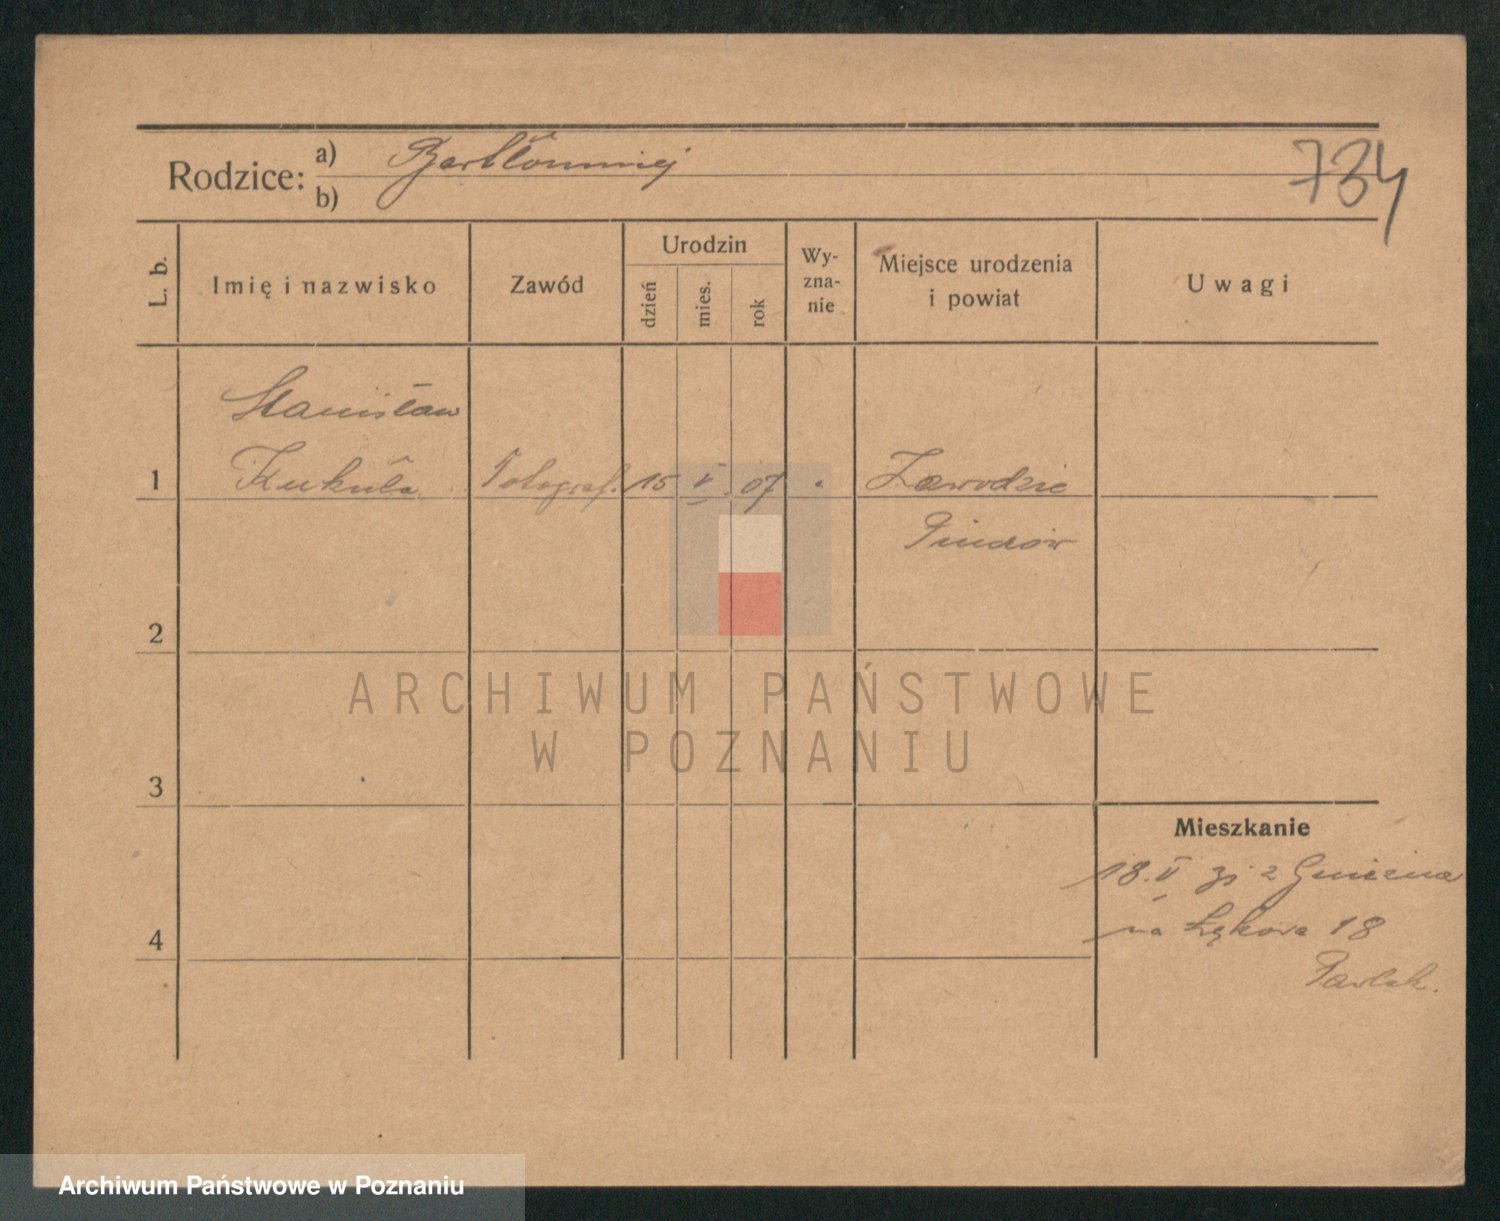 Rodzice: a) Bartłomniej
b)
734
L. b.
Imię i nazwisko
Zawód
Urodzin
dzień
mies.
rok
Wy-
zna-
nie
Miejsce urodzenia
i powiat
Uwagi
Stanisław
1 Kukuła Fotograf. 15 V. 07 Zawodzie
Pinczów
2
ARCHIWUM PAŃSTWOWE
W POZNANIU
3
Mieszkanie
18. V z Gniezna
4 na Łąkowa 18
Pawlak.
Archiwum Państwowe w Poznaniu